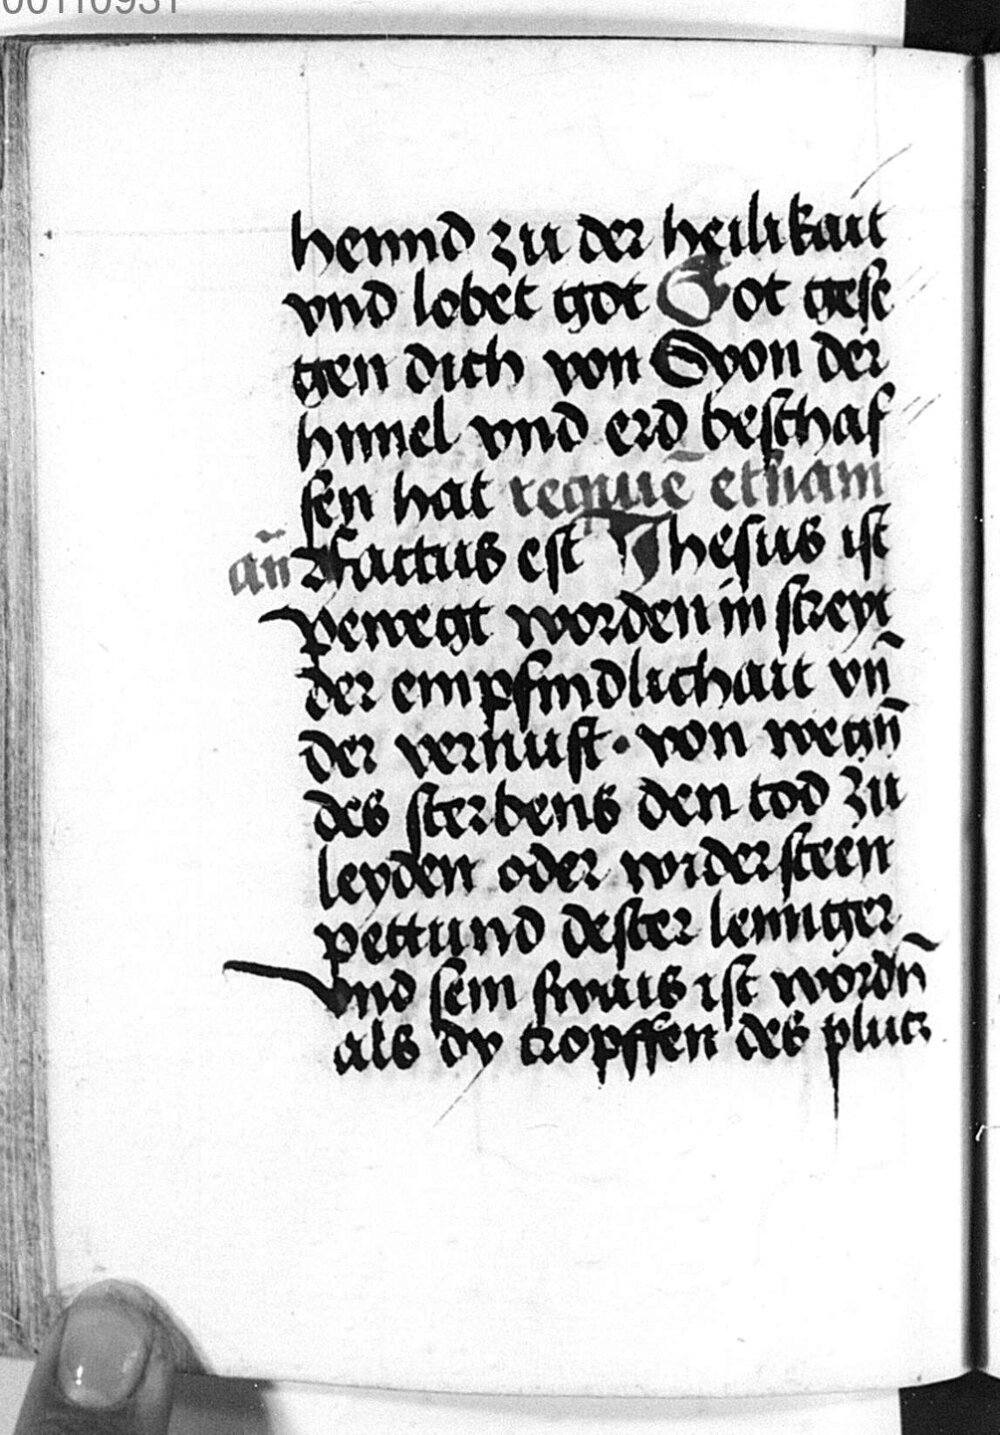 00110931
hennd zu der heilikait
vnd lobet got Got gese
gen dich von Syon der
himel vnd erd beschaf
fen hat requiē etnam
an̄ Factus est Jhesus ist
pewegt worden in streyt
der empfindlichait vn̄
der vernuft · von wegn̄
des sterbens den tod zu
leyden oder widersteen
pettund dester lennger
vnd sein swais ist wordn̄
als dy tropffen des plutz